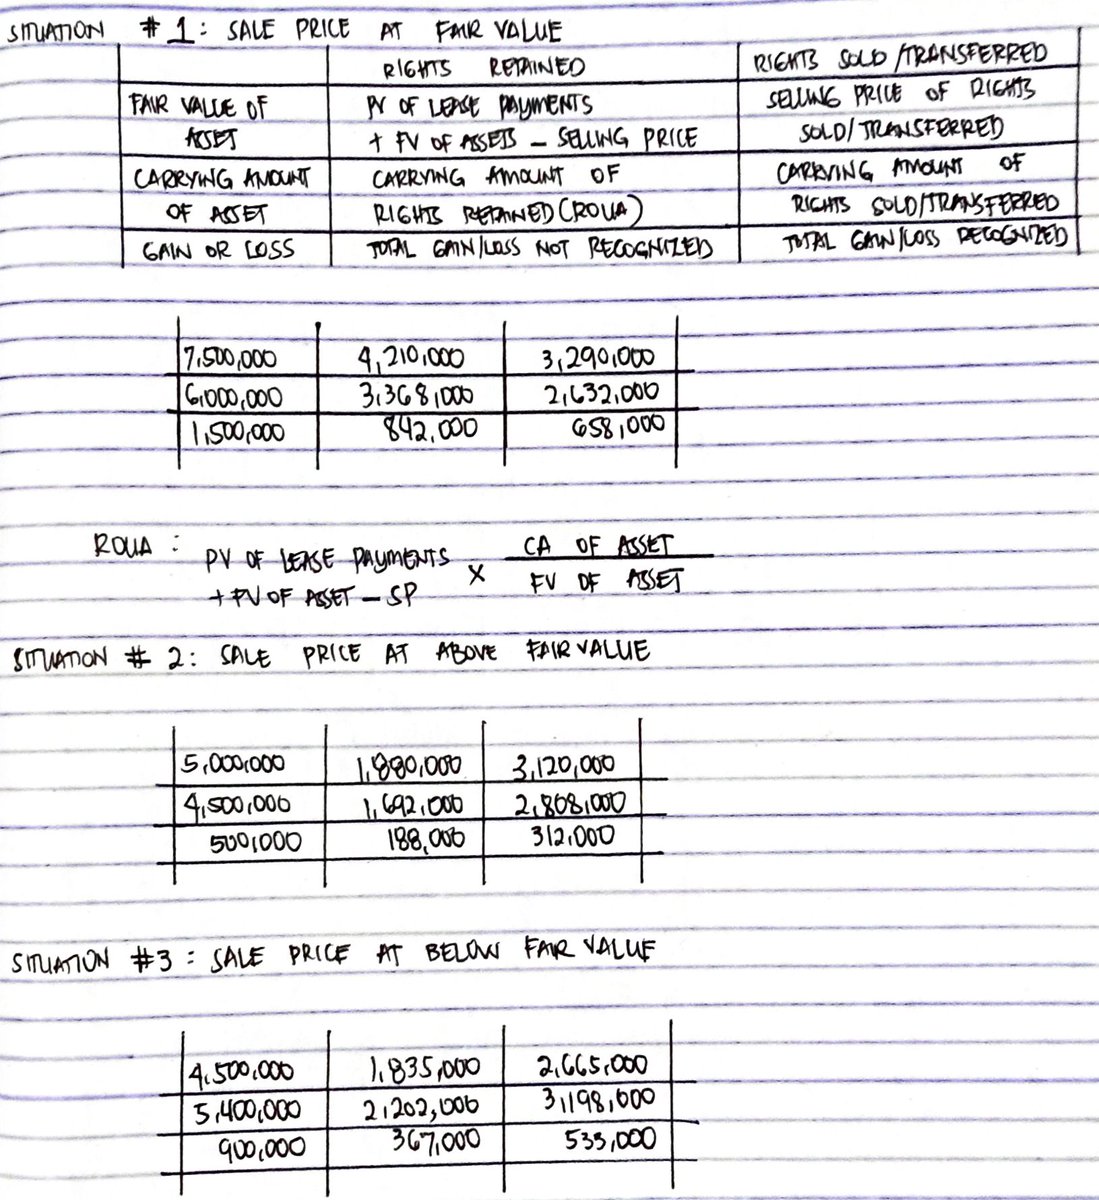 SITUATION # 1: SALE PRICE AT FAIR VALUE
RIGHTS RETAINED RIGHTS SOLD/TRANSFERRED
FAIR VALUE OF PV OF LEASE PAYMENTS SELLING PRICE OF RIGHTS
ASSET + FV OF ASSETS – SELLING PRICE SOLD/TRANSFERRED
CARRYING AMOUNT CARRYING AMOUNT OF CARRYING AMOUNT OF
OF ASSET RIGHTS RETAINED (ROUA) RIGHTS SOLD/TRANSFERRED
GAIN OR LOSS TOTAL GAIN/LOSS NOT RECOGNIZED TOTAL GAIN/LOSS RECOGNIZED
7,500,000 4,210,000 3,290,000
6,000,000 3,368,000 2,632,000
1,500,000 842,000 658,000
ROUA : PV OF LEASE PAYMENTS X CA OF ASSET
+ FV OF ASSET – SP FV OF ASSET
SITUATION # 2: SALE PRICE AT ABOVE FAIR VALUE
5,000,000 1,880,000 3,120,000
4,500,000 1,692,000 2,808,000
500,000 188,000 312,000
SITUATION #3 : SALE PRICE AT BELOW FAIR VALUE
4,500,000 1,835,000 2,665,000
5,400,000 2,202,000 3,198,000
900,000 367,000 533,000